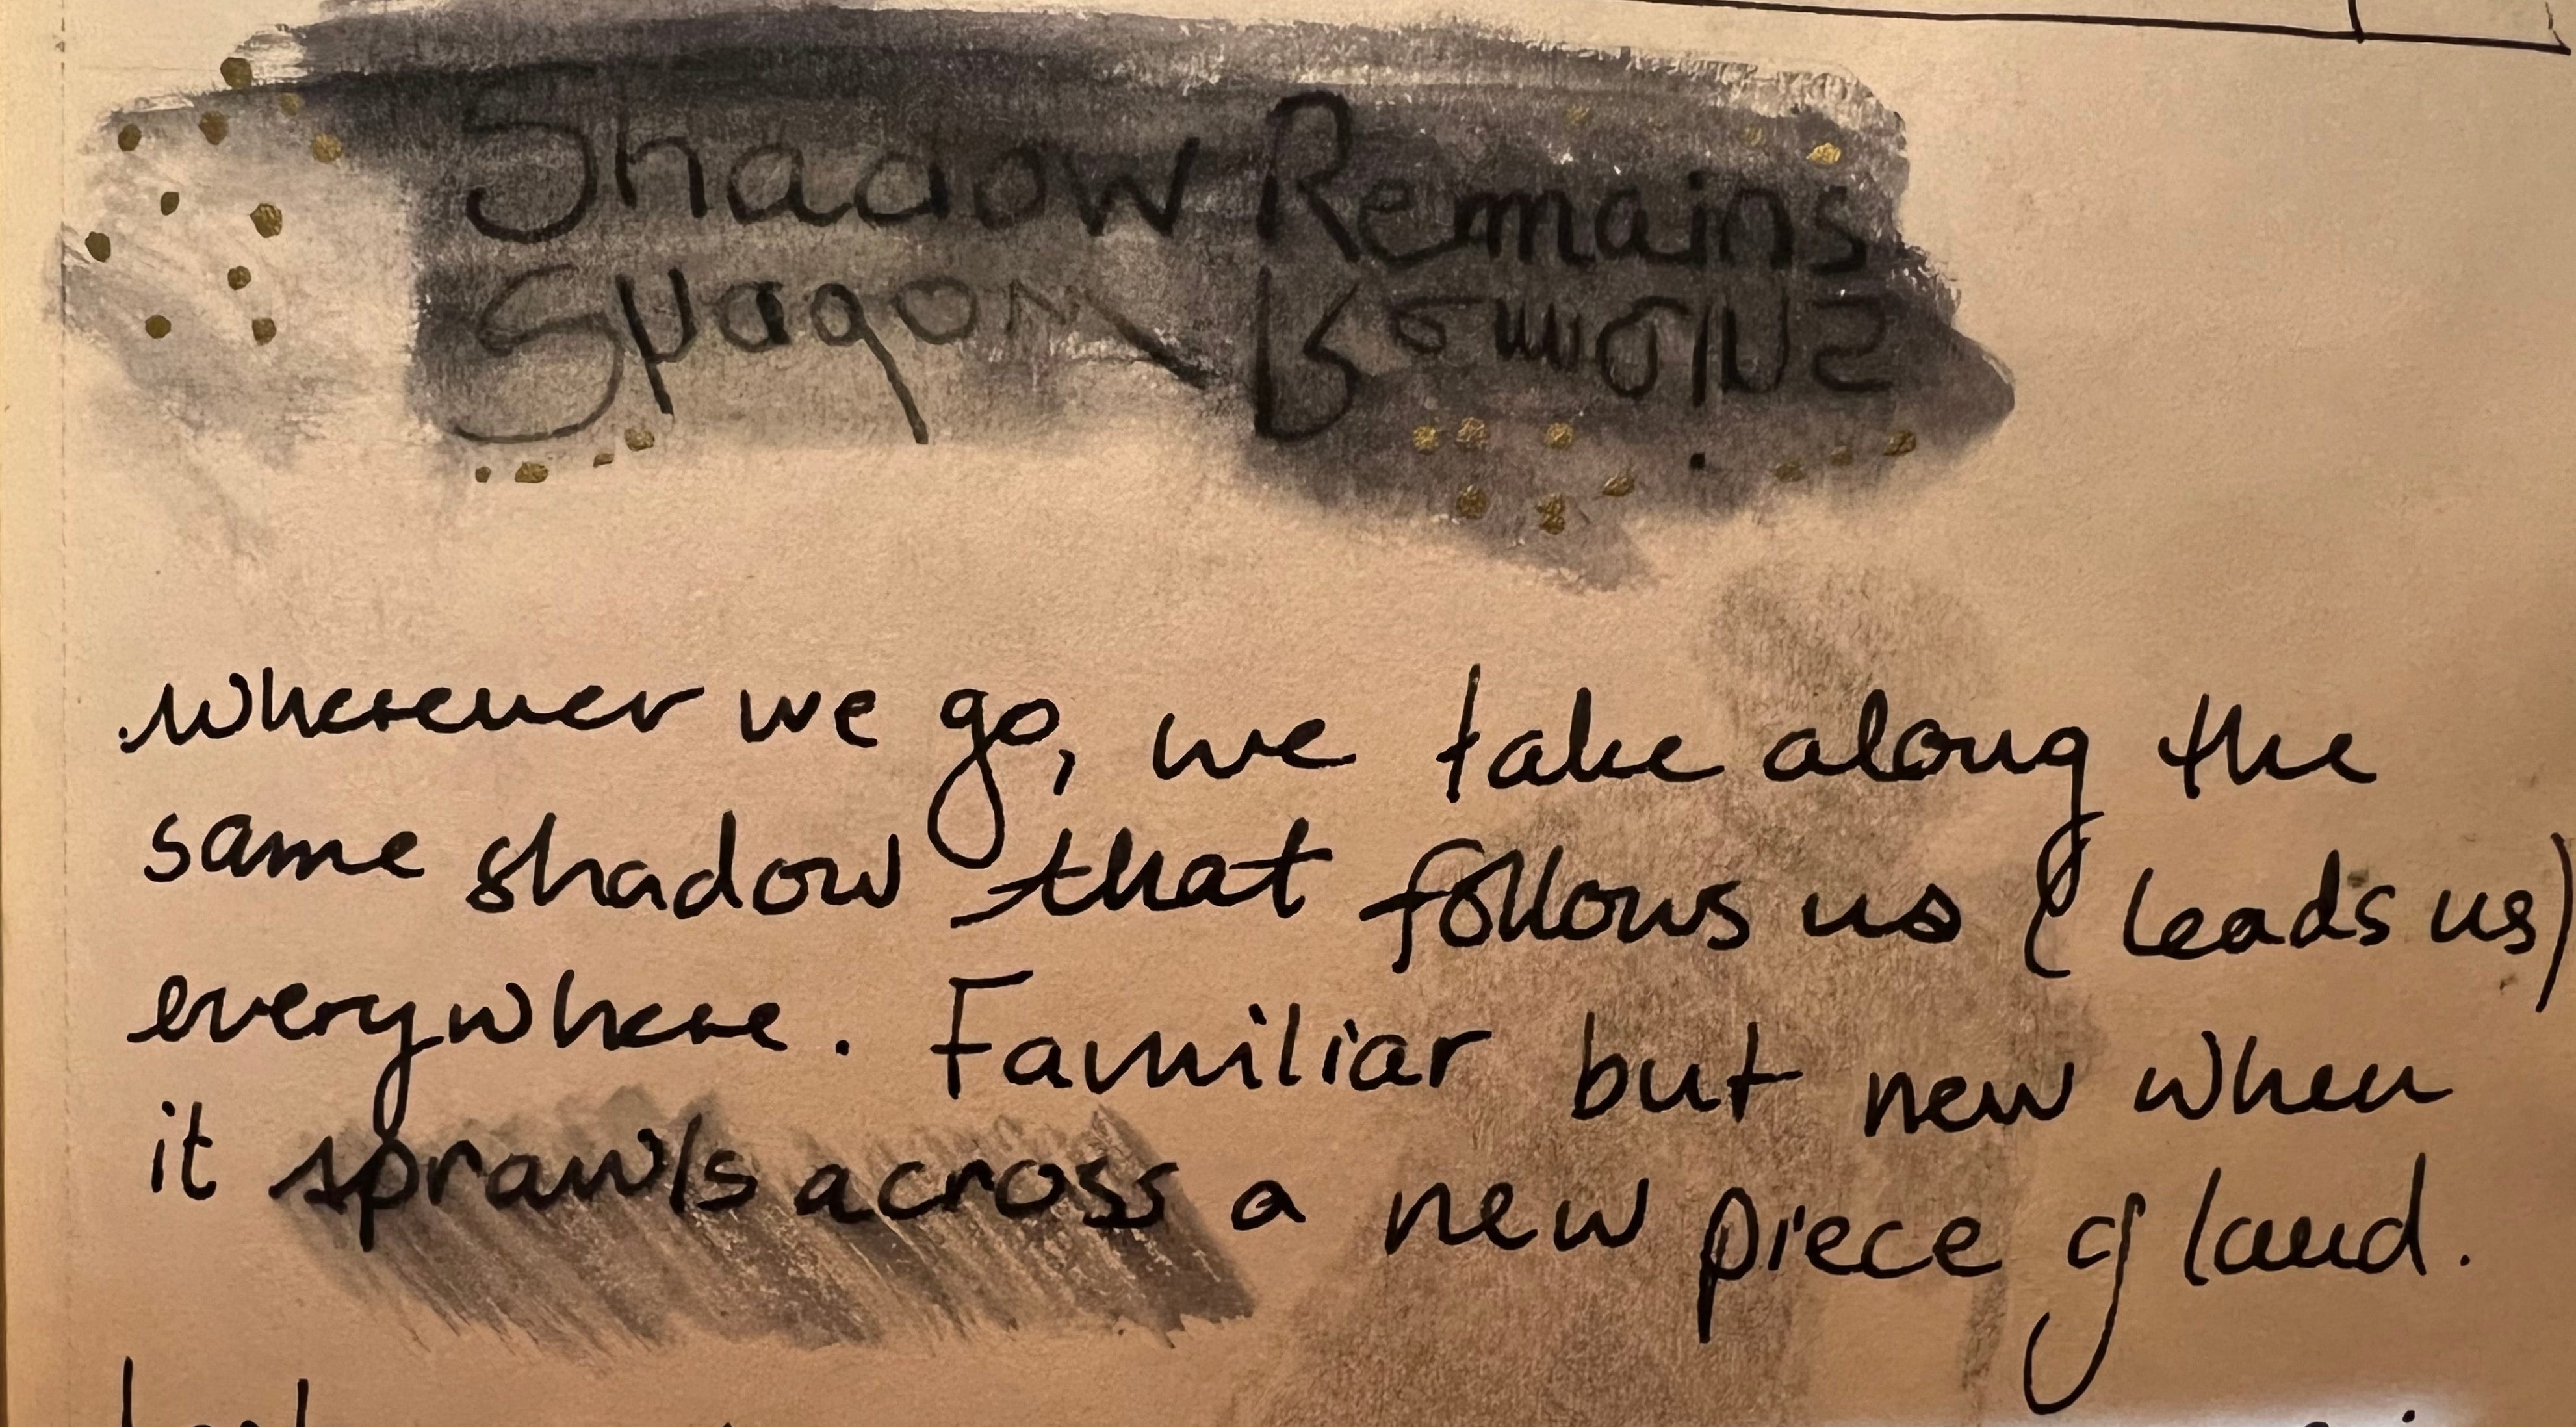 Shadow Remains
Shadow Remains
wherever we go, we take along the
same shadow that follows us (leads us)
everywhere. Familiar but new when
it sprawls across a new piece of land.